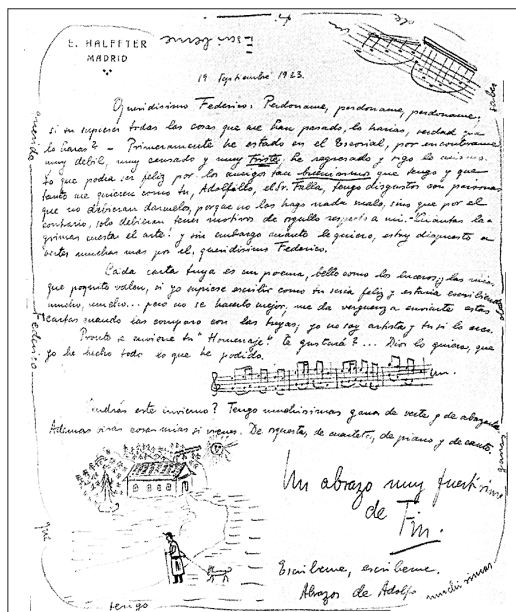 E. HALFFTER
MADRID
Escribeme
19 Septiembre 1923.
Queridisimo Federico: Perdoname, perdoname, perdoname,
si tu supieses todas las cosas que me han pasado, lo harias, verdad que
lo haras? - Primeramente he estado en el Escorial, por encontrarme
muy debil, muy cansado y muy triste; he regresado y sigo lo mismo.
Yo que podia ser feliz por los amigos tan buenisimos que tengo y que
tanto me quieren como tu, Adolfito, el Sr. Falla, tengo disgustos con personas
que no debieran darmelos, porque no les hago nada malo, sino que por el
contrario, solo debieran tener motivos de orgullo respecto a mi. - Cuantas la-
grimas cuesta el arte! y sin embargo cuanto le quiero, estoy dispuesto a
verter muchas mas por el, queridisimo Federico.
Cada carta tuya es un poema, bello como los luceros, y las mias
que poquito valen, si yo supiese escribir como tu seria feliz y estaria escribiendote
mucho, mucho... pero no se hacerlo mejor, me da verguenza enviarte estas
cartas cuando las comparo con las tuyas; yo no soy artista y tu si lo eres.
Pronto te enviare tu "Homenaje" te gustará?... Dios lo quiera, que
yo he hecho todo lo que he podido.
Vendrás este invierno? Tengo muchisimas ganas de verte y de abrazarte
Ademas oiras cosas mias si vienes. De orquesta, de cuarteto, de piano y de canto.
Un abrazo muy fuertisimo
de Tin.
Escribeme, escribeme.
Abrazos de Adolfo
muchisimas
tengo
querido
Federico
saber
de
ti